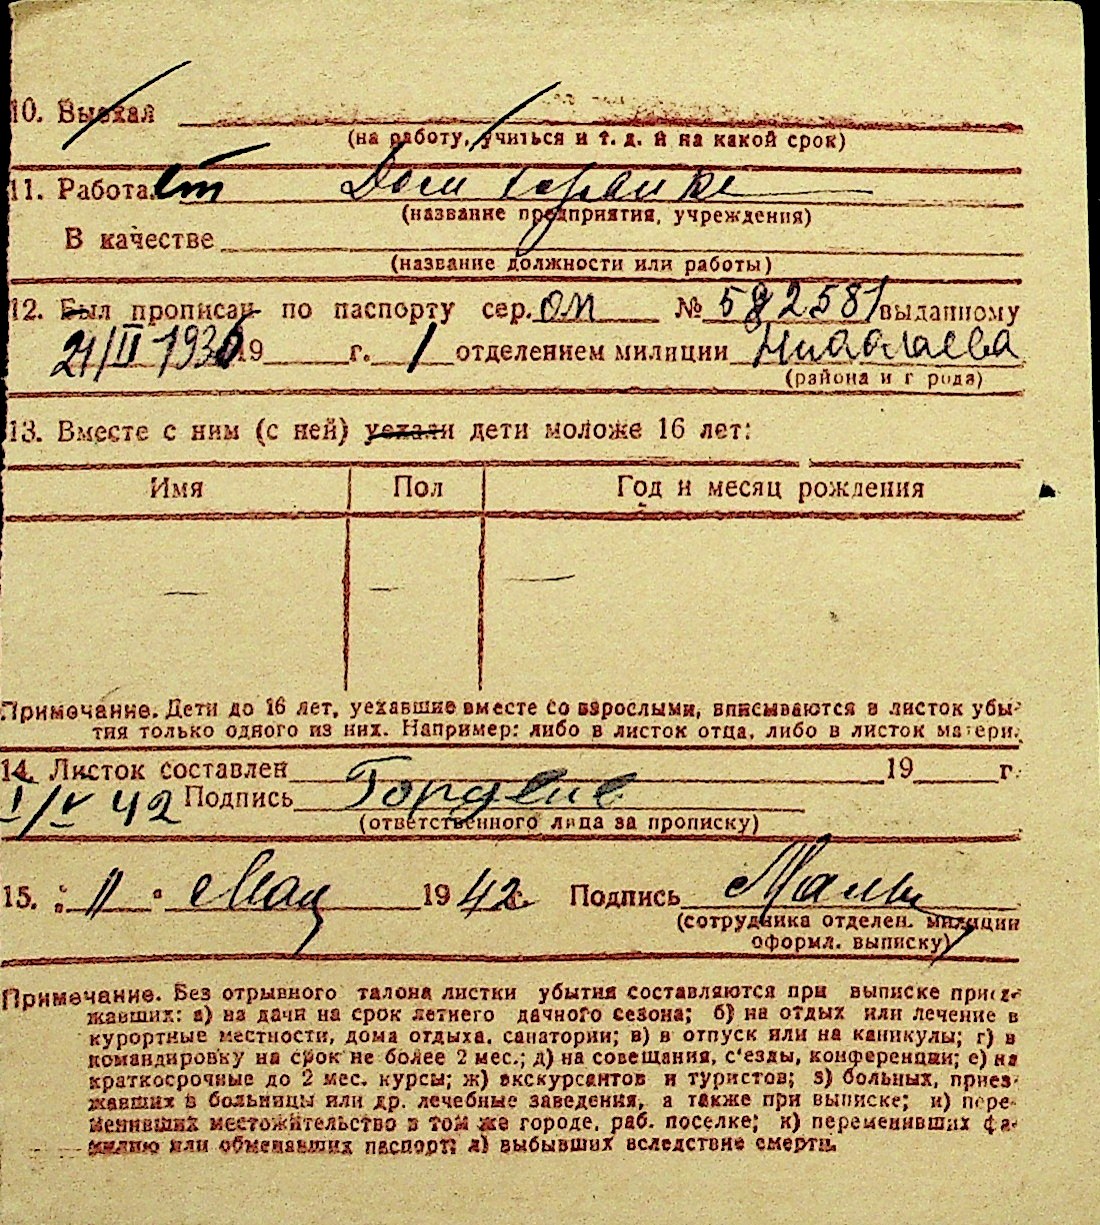 10. Выехал
(на работу, учиться и т. д. и на какой срок)
11. Работает Дом
(название предприятия, учреждения)
В качестве
(название должности или работы)
12. Был прописан по паспорту сер. ОМ № 582581 выданному
21/II 193 19 г. 1 отделением милиции Николаева
(района и г рода)
13. Вместе с ним (с ней) уехали дети моложе 16 лет:
Имя Пол Год и месяц рождения
— — —
Примечание. Дети до 16 лет, уехавшие вместе со взрослыми, вписываются в листок убы-
тия только одного из них. Например: либо в листок отца, либо в листок матери.
14. Листок составлен 19 г.
I/V 42 Подпись
(ответственного лица за прописку)
15. " 11 " Мая 1942 г. Подпись
(сотрудника отделен. милиции
оформл. выписку)
Примечание. Без отрывного талона листки убытия составляются при выписке приез-
жавших: а) на дачи на срок летнего дачного сезона; б) на отдых или лечение в
курортные местности, дома отдыха, санатории; в) в отпуск или на каникулы; г) в
командировку на срок не более 2 мес.; д) на совещания, с'езды, конференции; е) на
краткосрочные до 2 мес. курсы; ж) экскурсантов и туристов; з) больных, приез-
жавших в больницы или др. лечебные заведения, а также при выписке; и) пере-
менивших местожительство в том же городе, раб. поселке; к) переменивших фа-
милию или обменявших паспорт; л) выбывших вследствие смерти.